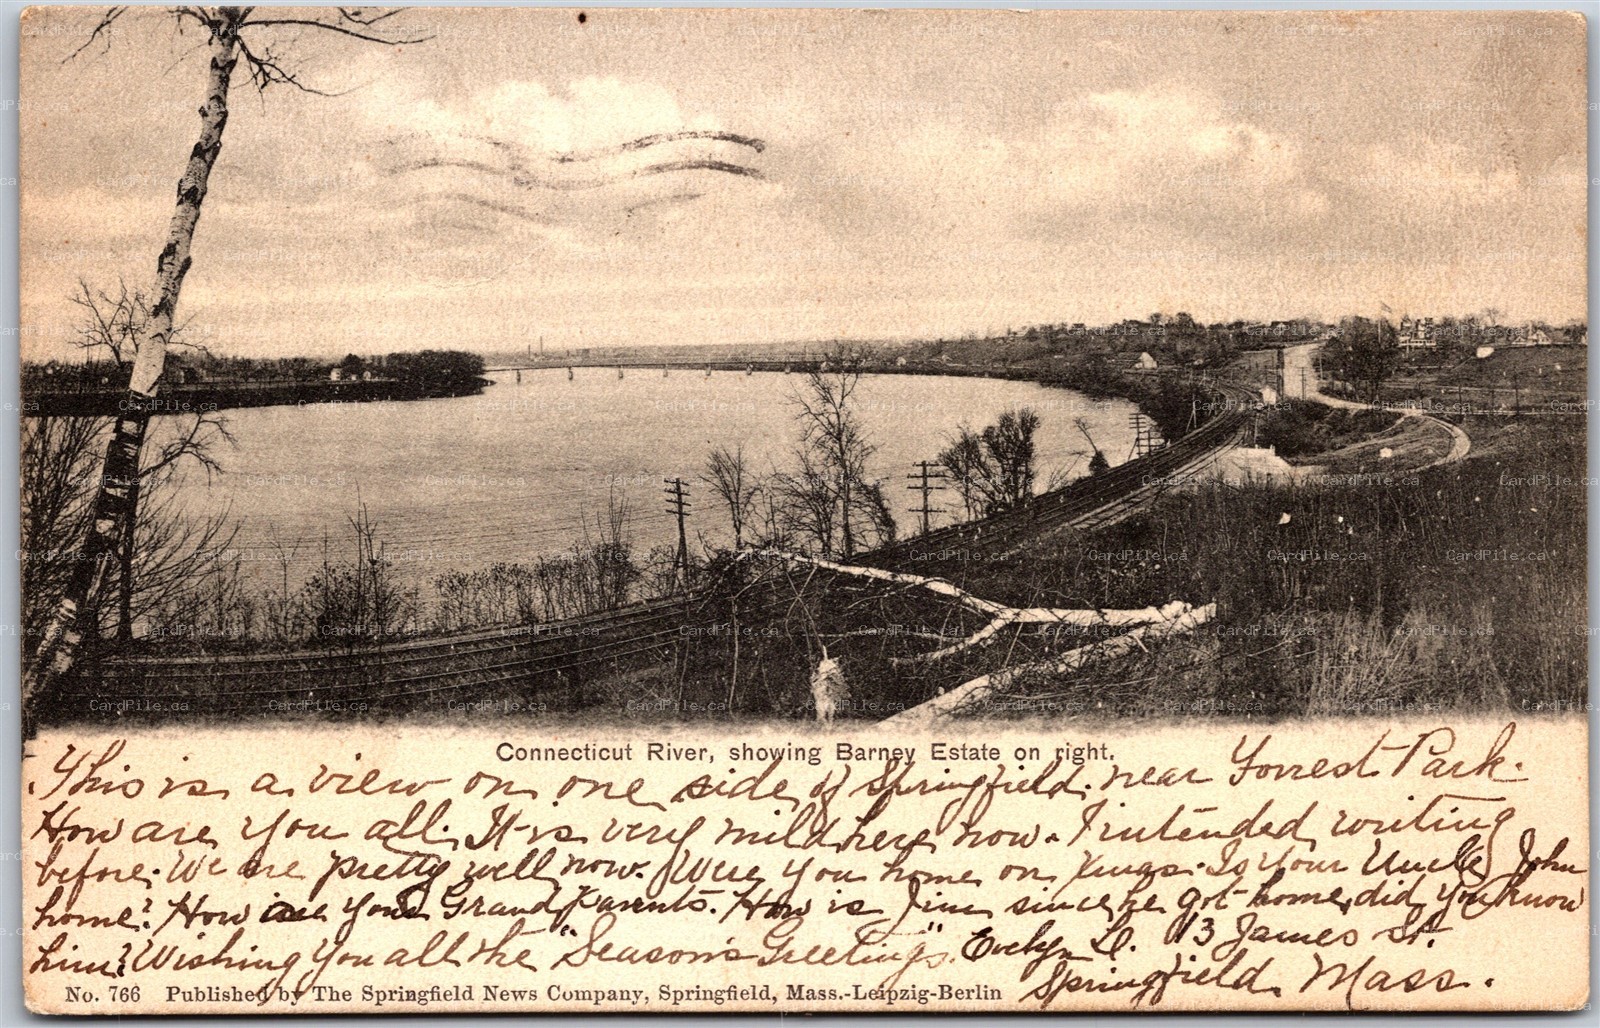 Connecticut River, showing Barney Estate on right.
This is a view on one side of Springfield near Forrest Park.
How are you all. It is very mild here now. I intended writing
before. We are pretty well now. Were you home on Xmas. Is your Uncle John
home? How are your Grand Parents. How is Jim since he got home, did you know
him? Wishing you all the "Season's Greetings". Evelyn D. 13 James St.
Springfield, Mass.
No. 766 Published by The Springfield News Company, Springfield, Mass.-Leipzig-Berlin
CardPile.ca